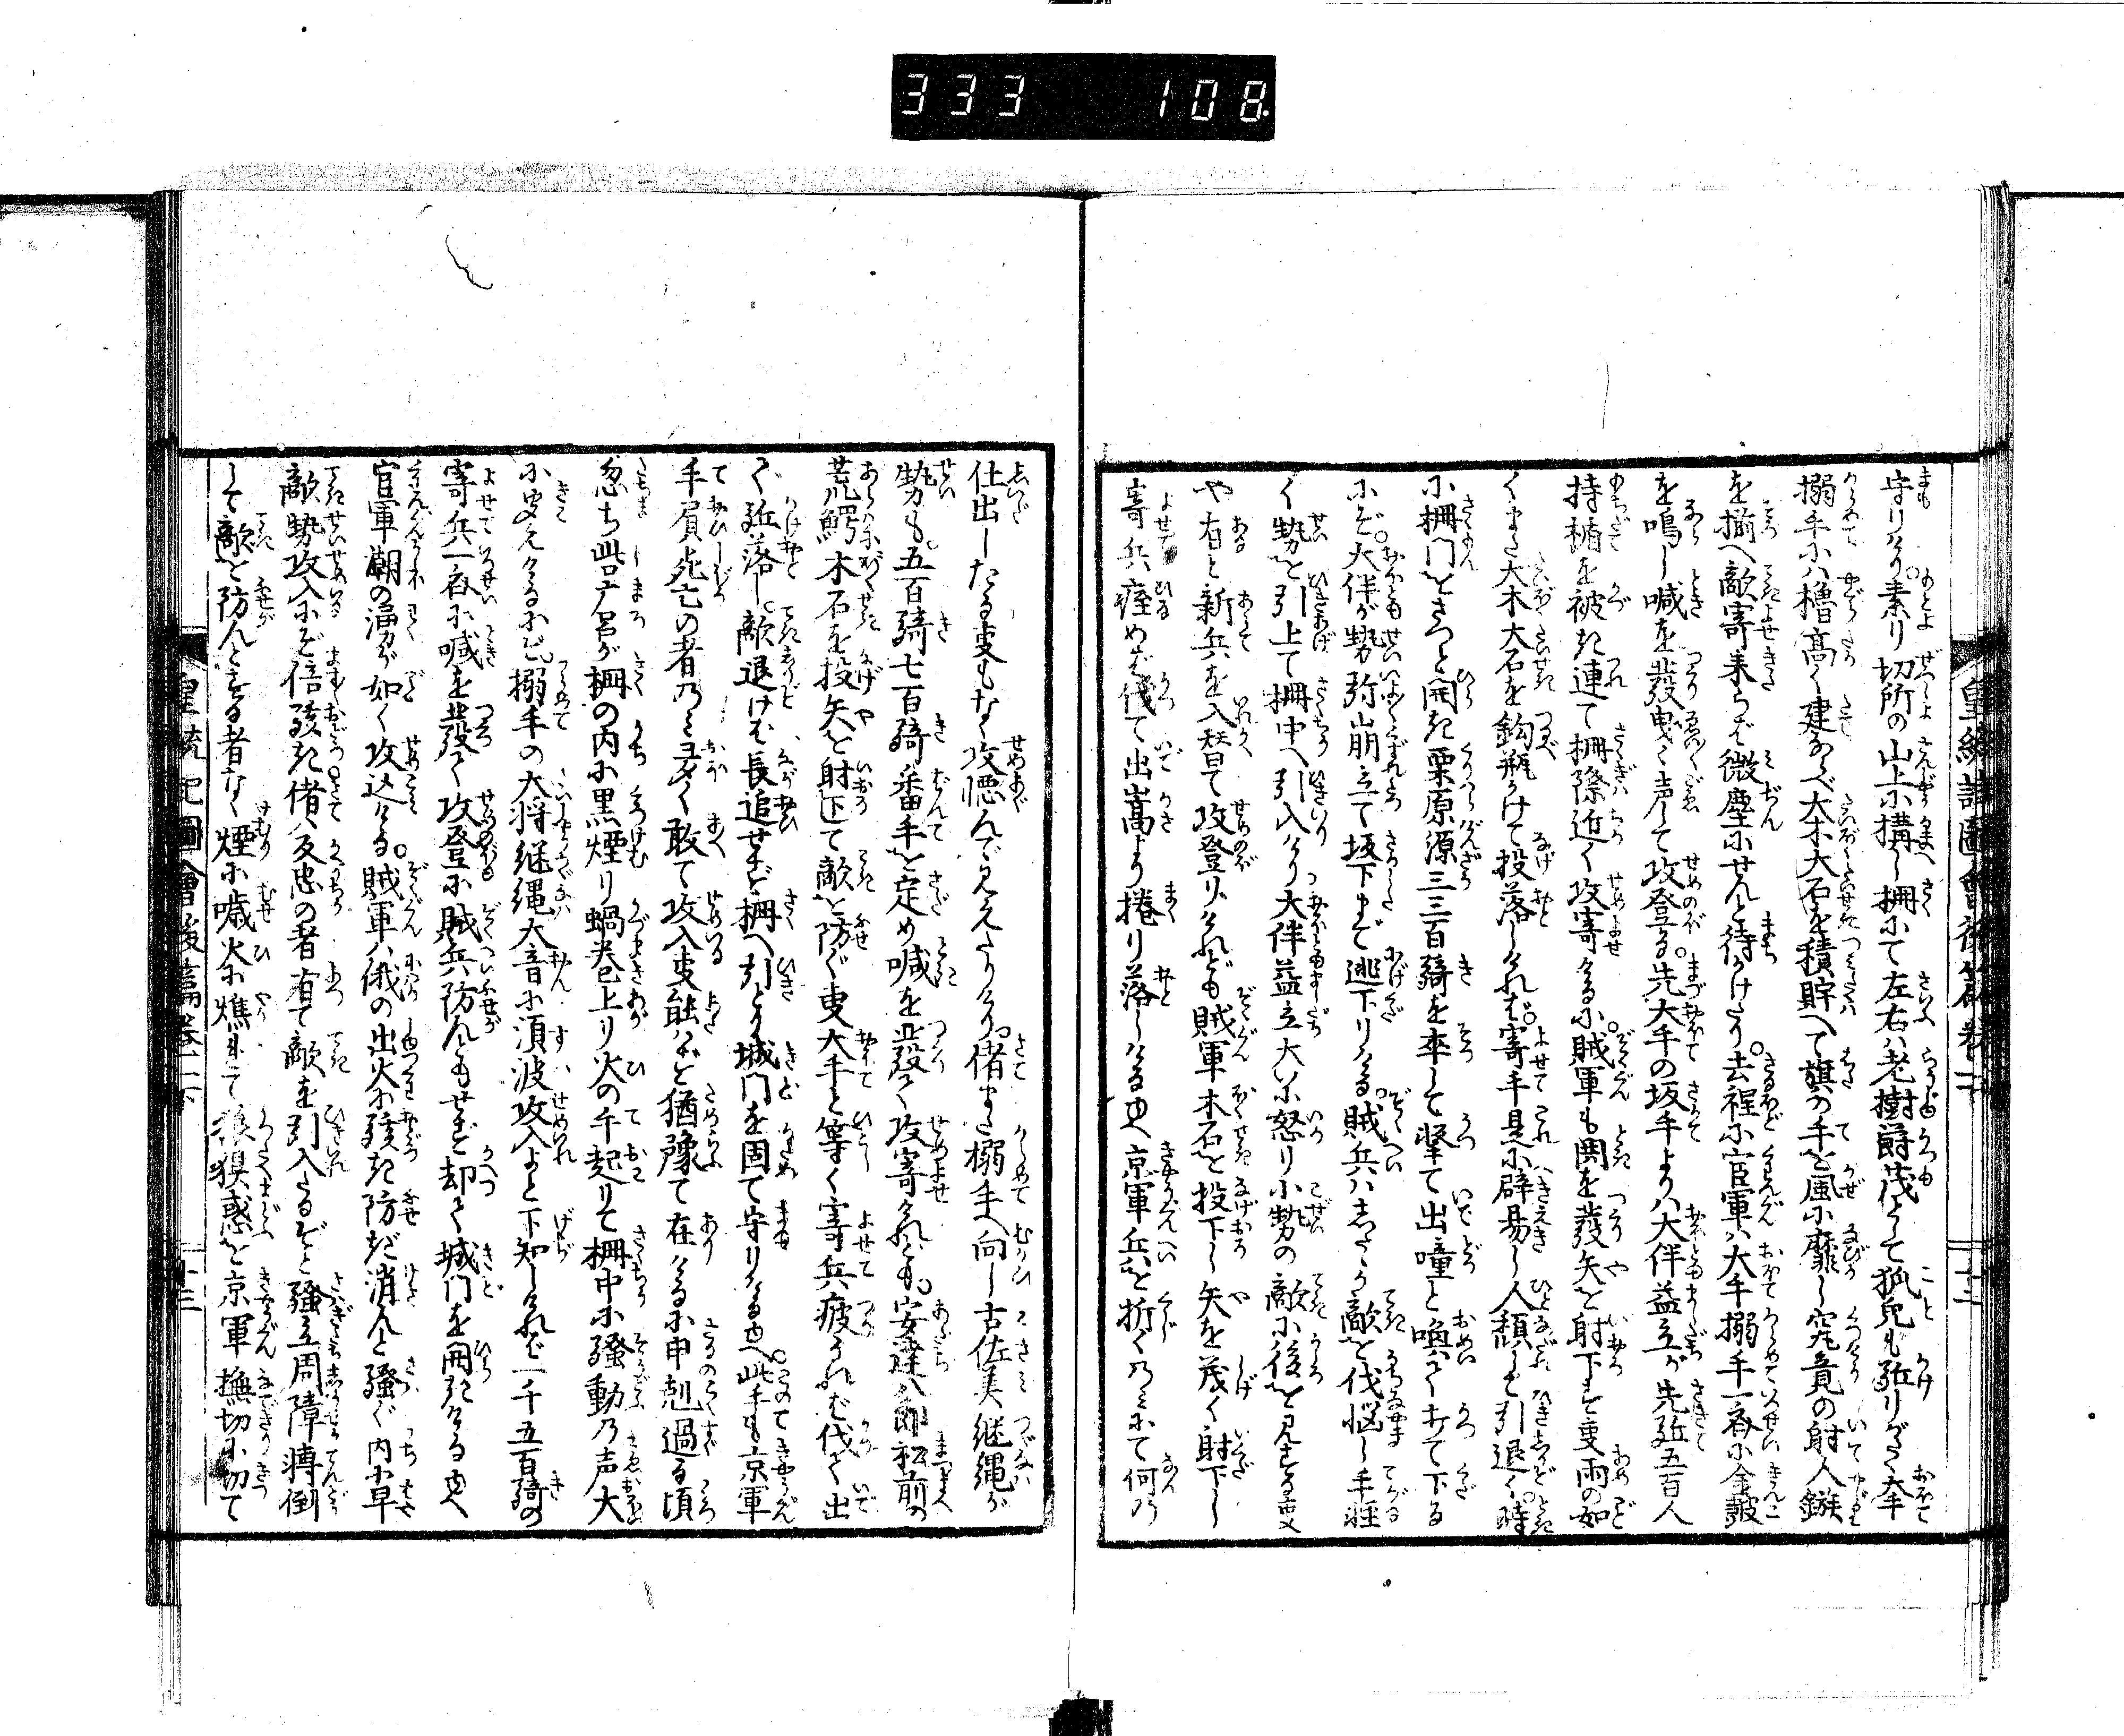 333 108
守りける素り切所の山上に構し柵にて左右ハ老樹蔚茂として狐兒も斫りがたく大手
搦手ハ櫓高く建ならべ大木大石を積貯へて旗の手を風に靡し究竟の射人鏃
を揃へ敵寄来らバ微塵にせんと待かけたり去程に官軍ハ大手搦手一斉に金鼓
を鳴し喊を發曳々声して攻登る先大手の坂手よりハ大伴益立が先陣五百人
持楯を被き連て柵際近く攻寄けるに賊軍も鬨を發矢を射下す事雨の如
くまた大木大石を釣瓶かけて投落しけれバ寄手是に辟易し人頽して引退く時
に柵門をさつと開き栗原源三三百騎を率して撃て出噇と喚て打て下る
にぞ大伴が勢弥山崩立て坂下まで逃下りける賊兵ハしたゝか敵を伐悩し手軽
く勢を引上て柵中へ引入けり大伴益立大に怒り小勢の敵に後を見する事
や有と新兵を入替て攻登りけれども賊軍木石を投下し矢を茂く射下し
寄兵痓めバ伐て出嵩より捲り落しけるゆへ京軍兵を折くのミにて何の
仕出したる事もなく攻倦んで見えたりける偖また搦手へ向し古佐美継縄が
勢も五百騎七百騎番手を定め喊を發て攻寄けれども安達八郎松前の
荒鰐木石を投矢を射下て敵を防ぐ事大手と等く寄兵疲るれバ伐て出
て斫落し敵退けバ長追せずして柵へ引とり城門を固て守りけるゆへ此手も京軍
手負死亡の者のミ多く敢て攻入事能ハずと猶豫て在けるに申刻過る頃
忽ち呰麻呂が柵の内に黒煙り蝸巻上り火の手起りて柵中に騒動の声大
に聞えけるにぞ搦手の大将継縄大音に須波攻入よと下知しけれバ一千五百騎の
寄兵一斉に喊を發て攻登に賊兵防んともせず却て城門を開きけるゆへ
官軍潮の湧が如く攻込ける賊軍ハ俄の出火に駭き防だ消んと騒ぐ内に早
敵勢攻入にぞ倍駭き偖ハ反忠の者有て敵を引入たるぞと騒立周障轉倒
して敵を防んとする者なく煙に噎火に燋れて狼狽惑を京軍撫切に切て
皇統記圖會後篇巻一下 十三